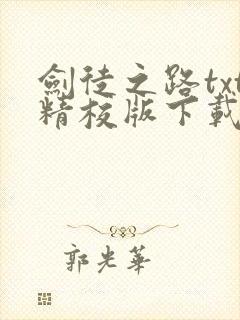 劍徒之路txt
精校版下載
郭光華